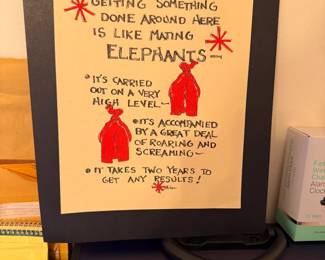 GETTING SOMETHING
DONE AROUND HERE
IS LIKE MATING
ELEPHANTS—
• IT'S CARRIED
OUT ON A VERY
HIGH LEVEL—
• IT'S ACCOMPANIED
BY A GREAT DEAL
OF ROARING AND
SCREAMING—
• IT TAKES TWO YEARS TO
GET ANY RESULTS!
Alarm
Clock